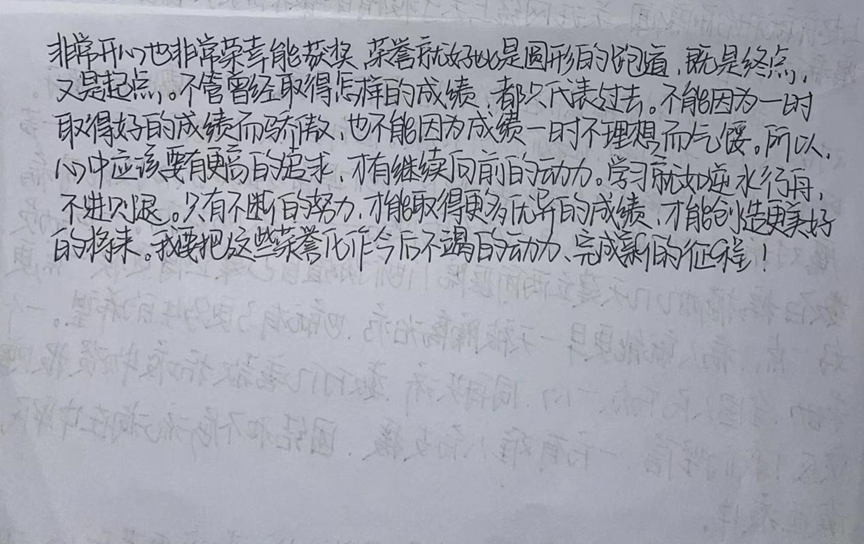 非常开心也非常荣幸能获奖,荣誉就好比是圆形的跑道,既是终点,
又是起点,。不管曾经取得怎样的成绩,都只代表过去。不能因为一时
取得好的成绩而骄傲,也不能因为成绩一时不理想而气馁。所以,
心中应该要有更高的追求,才有继续向前的动力。学习就如逆水行舟,
不进则退。只有不断的努力,才能取得更多优异的成绩,才能创造更美好
的将来。我要把这些荣誉化作今后不竭的动力、完成新的征程!